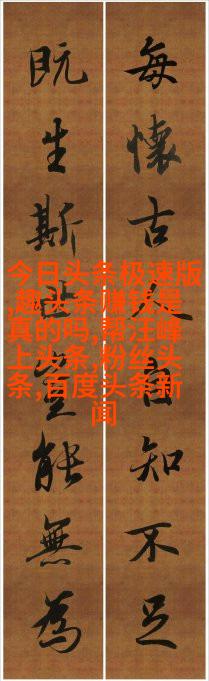 每懷古人自知不足
既生斯世豈能無為
今日头条极速版
,趣头条赚钱是
真的吗,帮汪峰
上头条,粉丝头
条,百度头条新
闻